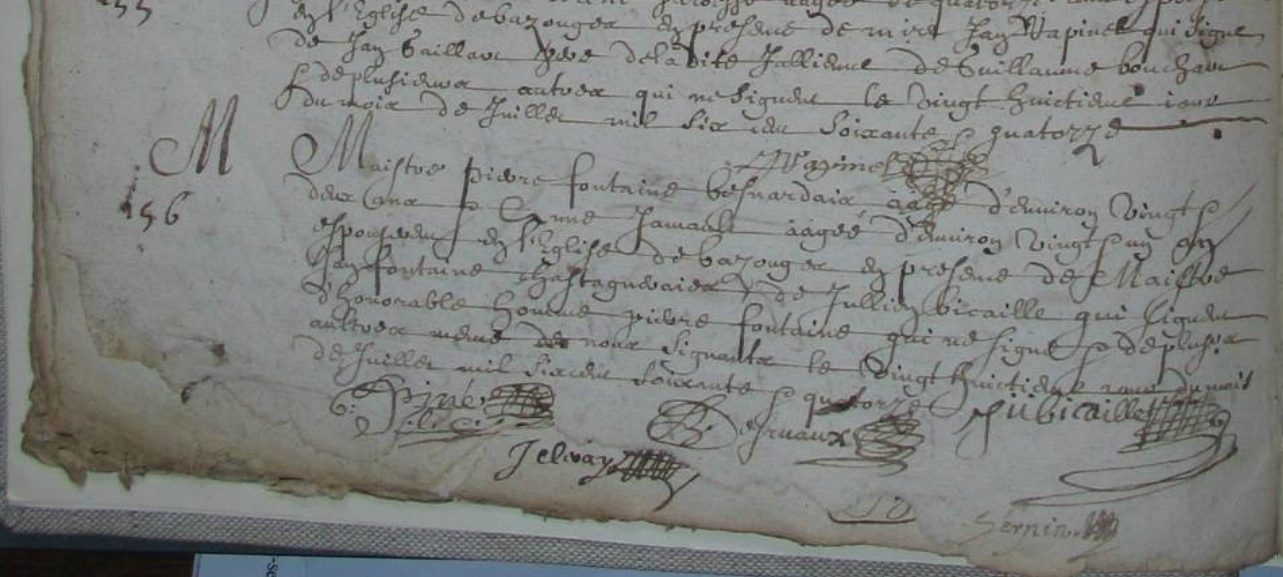 155
en l'Eglise de bazouges en presence de mire Jan Rapinel qui signe
de Jan Gaillar pere de la dite Jallienne de Guillaume bouchar
& de plusieurs autres qui ne signent le vingt huictieme jour
du mois de Juillet mil six cen soixante & quatorze
Rapinel
M
156
Maistre pierre fontaine besnardais aagé d'environ vingt &
deux ans & Anne Jamault aagée d'environ vingt & un an
espouserent en l'Eglise de bazouges en presence de Maistre
Jan fontaine Chastagneraies & de Jullien bicaille qui signent
d'honorable homme pierre fontaine qui ne signe & de plusrs
aultres mesme de nous signants le vingt huictieme jour du mois
de Juillet mil six cen soixante & quatorze
Piné
Desruaux
Jubicaille
Jelvay
Sernin